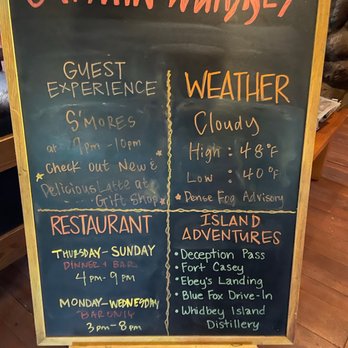 GUEST
EXPERIENCE
S'MORES
at 7pm - 10pm
Check out New &
Delicious Latte at
Gift Shop
WEATHER
Cloudy
High : 48°F
Low : 40°F
Dense Fog Advisory
RESTAURANT
THURSDAY - SUNDAY
DINNER & BAR
4pm - 9pm
MONDAY - WEDNESDAY
BAR ONLY
3pm - 8pm
ISLAND
ADVENTURES
• Deception Pass
• Fort Casey
• Ebey's Landing
• Blue Fox Drive-In
• Whidbey Island
Distillery